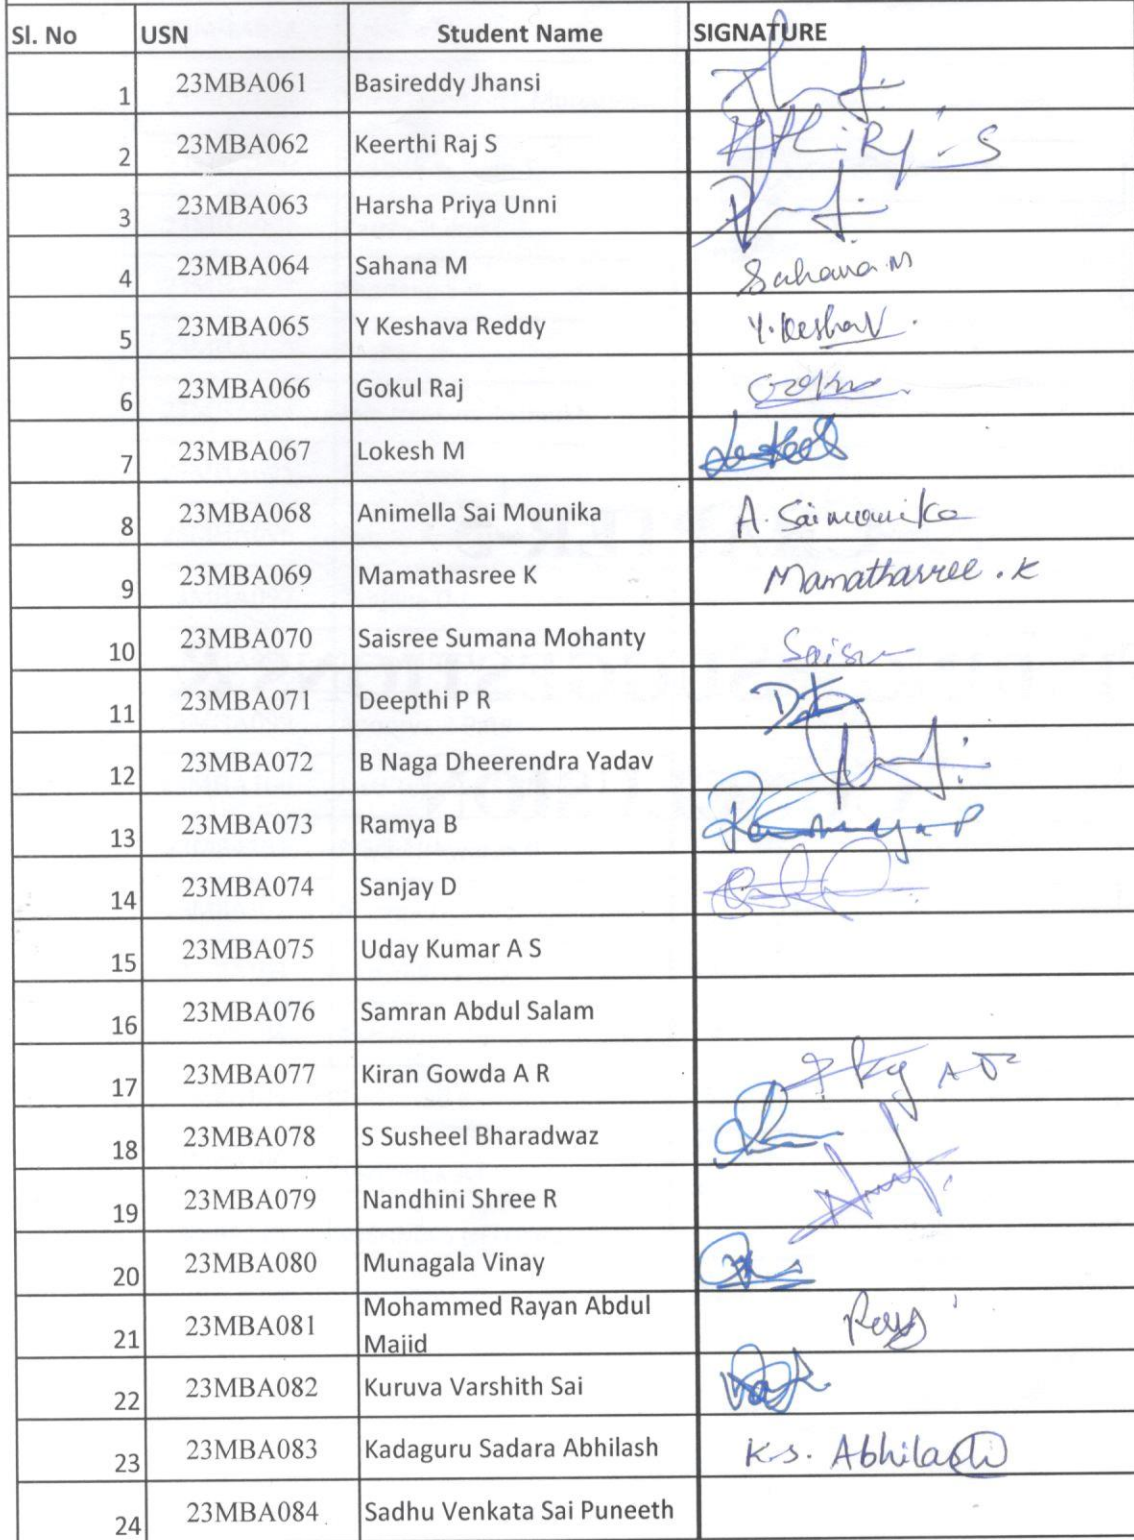 Sl. No USN Student Name SIGNATURE
1 23MBA061 Basireddy Jhansi
2 23MBA062 Keerthi Raj S
3 23MBA063 Harsha Priya Unni
4 23MBA064 Sahana M Sahana M
5 23MBA065 Y Keshava Reddy Y. Keshav.
6 23MBA066 Gokul Raj
7 23MBA067 Lokesh M
8 23MBA068 Animella Sai Mounika A. Saimounika
9 23MBA069 Mamathasree K Mamathasree . K
10 23MBA070 Saisree Sumana Mohanty
11 23MBA071 Deepthi P R
12 23MBA072 B Naga Dheerendra Yadav
13 23MBA073 Ramya B
14 23MBA074 Sanjay D
15 23MBA075 Uday Kumar A S
16 23MBA076 Samran Abdul Salam
17 23MBA077 Kiran Gowda A R
18 23MBA078 S Susheel Bharadwaz
19 23MBA079 Nandhini Shree R
20 23MBA080 Munagala Vinay
21 23MBA081 Mohammed Rayan Abdul
Majid
22 23MBA082 Kuruva Varshith Sai
23 23MBA083 Kadaguru Sadara Abhilash K.S. Abhilash
24 23MBA084 Sadhu Venkata Sai Puneeth